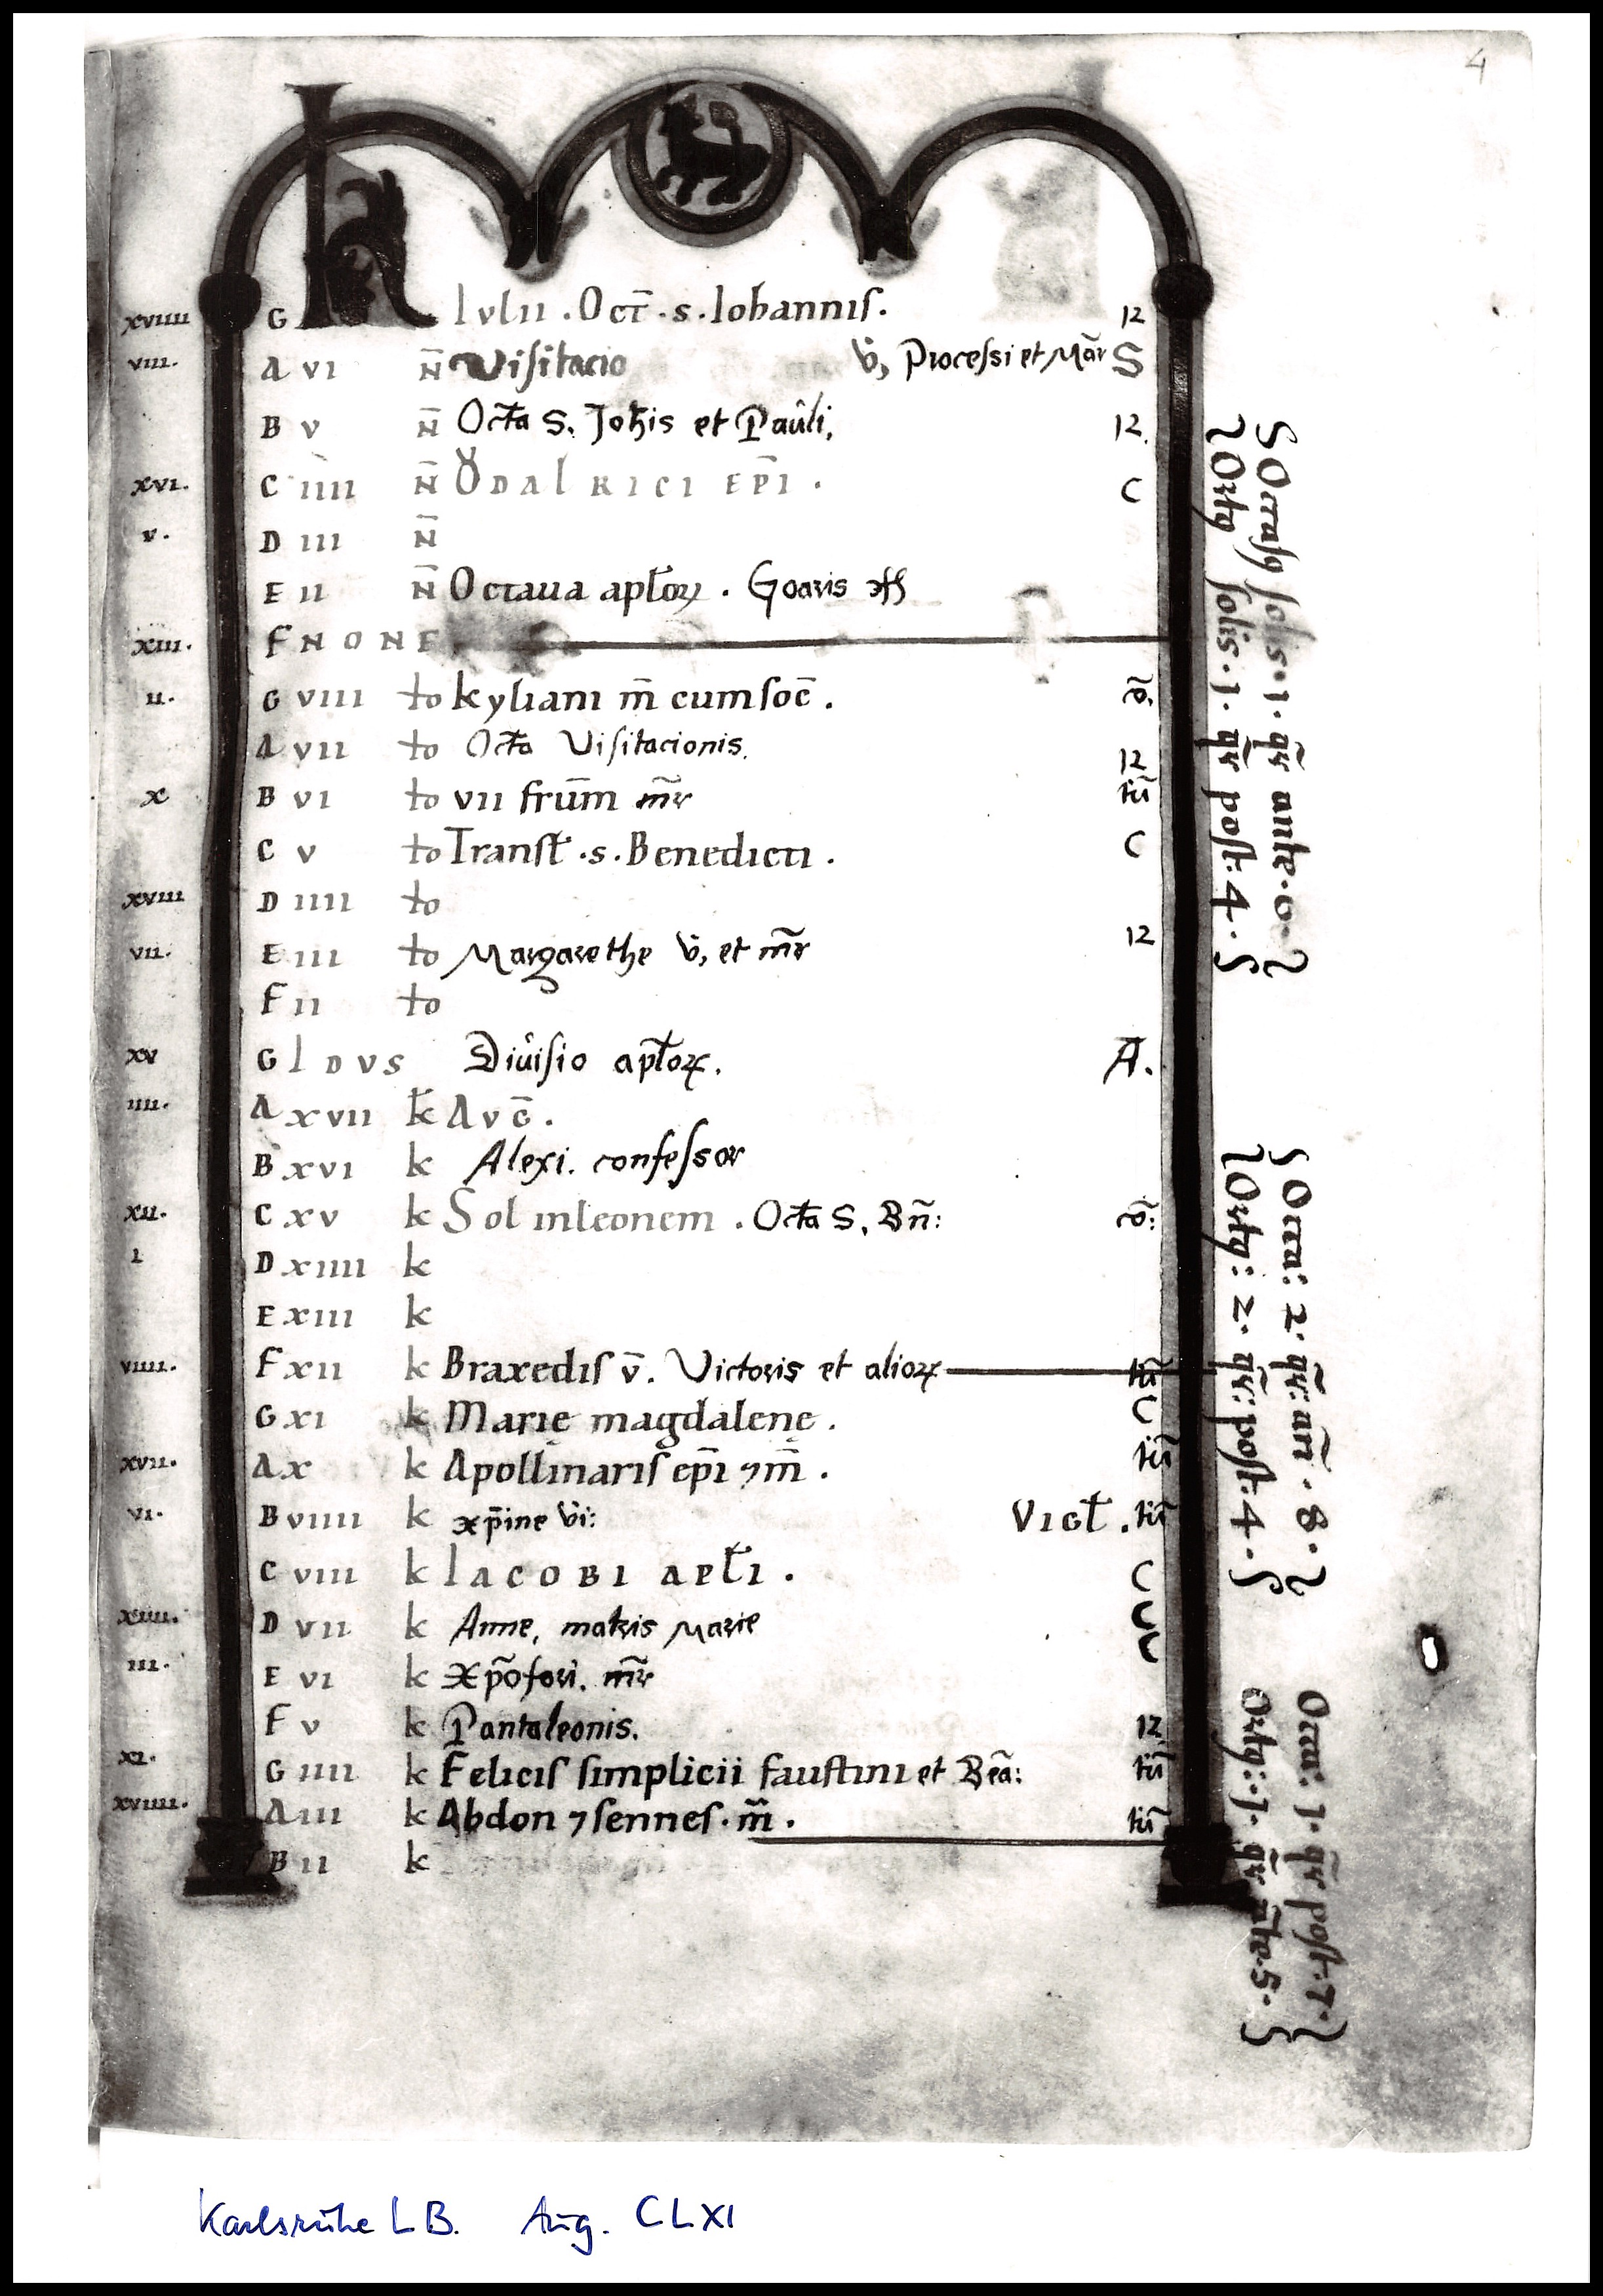 4
xviiii G K Ivlii . Oct̄ . s . Iohannis . 12
viii. A vi N̄ Visitacio v̇, Processi et Mār S
B v N̄ Octa S. Johis et Pauli, 12.
xvi. C iiii N̄ Odalrici ep̄i . C
v. D iii N̄
E ii N̄ Octaua apl̄oꝝ . Goaris
xiii. F NONE
ii. G viii to kyliani m̄ cum soc̄ . c̄o.
A vii to Octa Visitacionis. 12
x B vi to vii frūm mr̄ tū
C v to Transl̄ . s . Benedicti . C
xviii D iiii to
vii. E iii to Margarethe v̇, et mr̄ 12
F ii to
xv G Idvs Diuisio apl̄oꝝ. A.
iiii. A xvii k̄ Avḡ .
B xvi k Alexi. confessor
xii. C xv k Sol in leonem . Octa S. Bn̄: c̄o:
i D xiiii k
E xiii k
viiii. F xii k Braxedis v̄ . Victoris et alioꝝ tū
G xi k Marie magdalene . C
xvii. A x k Apollinaris ep̄i ⁊ m̄ . tū
vi. B viiii k xp̄ine vi: Vigl̄ . tū
C viii k Iacobi apl̄i . C
xiiii. D vii k Anne, matris Marie C
iii. E vi k Xp̄ofori. mr̄ C
F v k Pantaleonis. 12
xi. G iiii k Felicis simplicii faustini et Beā: tū
xviiii. A iii k Abdon ⁊ sennes . m̄ . tū
B ii k
Occasꝰ solis . 1 . qr̄ ante . 0 .
Ortꝰ solis . 1 . qr̄ post . 4 .
Occa: 2 . qr̄: an̄ . 8 .
Ortꝰ: 2 . qr̄: post . 4 .
Occa: 1 . qr̄ post . 7 .
Ortꝰ: 1 . qr̄ āte . 5 .
Karlsruhe LB. Aug. CLXI